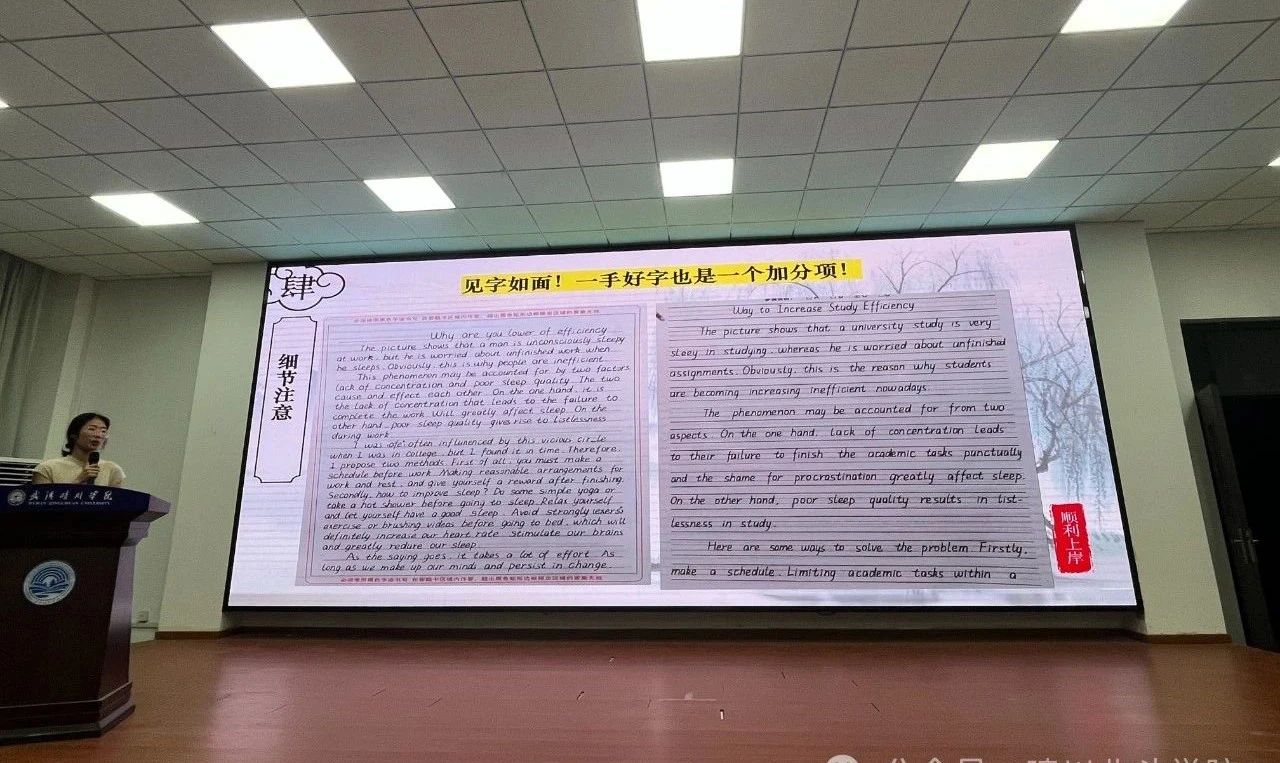 肆
见字如面！一手好字也是一个加分项！
细节注意
Why are you lower of efficiency
The picture shows that a man is unconsciously sleepy
at work, but he is worried about unfinished work when
he sleeps. Obviously, this is why people are inefficient.
This phenomenon may be accounted for by two factors
lack of concentration and poor sleep quality. The two
cause and effect each other. On the one hand, it is
the lack of concentration that leads to the failure to
complete the work. Will greatly affect sleep. On the
other hand, poor sleep quality gives rise to listlessness
during work.
I was often influenced by this vicious circle
when I was in college, but I found it in time. Therefore,
I propose two methods. First of all, you must make a
schedule before work. Making reasonable arrangements for
work and rest, and give yourself a reward after finishing.
Secondly, how to improve sleep? Do some simple yoga or
take a hot shower before going to sleep. Relax yourself
and let yourself have a good sleep. Avoid strongly
exercise or brushing videos before going to bed, which will
definitely increase our heart rate. Stimulate our brains
and greatly reduce our sleep.
As the saying goes, it takes a lot of effort. As
long as we make up our minds and persist in change.
Way to Increase Study Efficiency
The picture shows that a university study is very
sleey in studying, whereas he is worried about unfinished
assignments. Obviously, this is the reason why students
are becoming increasing inefficient nowadays.
The phenomenon may be accounted for from two
aspects. On the one hand, lack of concentration leads
to their failure to finish the academic tasks punctually
and the shame for procrastination greatly affect sleep.
On the other hand, pour sleep quality results in list-
lessness in study.
Here are some ways to solve the problem. Firstly,
make a schedule. Limiting academic tasks within a
顺利上岸
武汉晴川学院
WUHAN QINGCHUAN UNIVERSITY